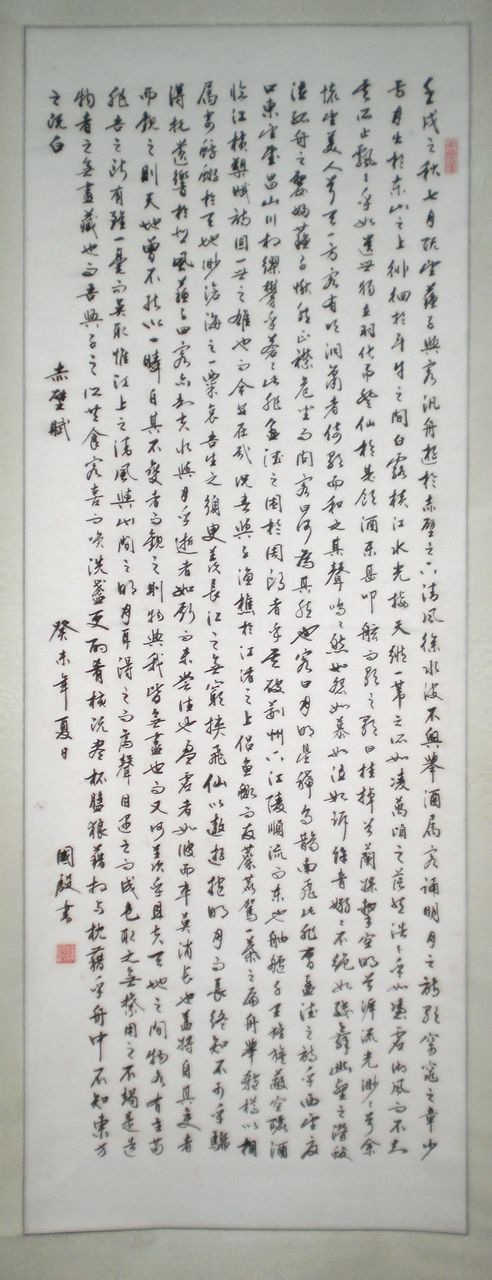 壬戌之秋七月既望蘇子與客汎舟遊於赤壁之下清風徐水波不興舉酒屬客誦明月之詩歌窈窕之章少
焉月出於東山之上徘徊於斗牛之間白露橫江水光接天縱一葦之所如凌萬頃之茫然浩浩乎如憑虛御風而不知
其所止飄飄乎如遺世獨立羽化而登仙於是飲酒樂甚叩舷而歌之歌曰桂棹兮蘭槳擊空明兮溯流光渺渺兮余
懷望美人兮天一方客有吹洞簫者倚歌而和之其聲嗚嗚然如怨如慕如泣如訴餘音嫋嫋不絕如縷舞幽壑之潛蛟
泣孤舟之嫠婦蘇子愀然正襟危坐而問客曰何為其然也客曰月明星稀烏鵲南飛此非曹孟德之詩乎西望夏
口東望武昌山川相繆鬱乎蒼蒼此非孟德之困於周郎者乎其破荊州下江陵順流而東也舳艫千里旌旗蔽空釃酒
臨江橫槊賦詩固一世之雄也而今安在哉況吾與子漁樵於江渚之上侶魚蝦而友麋鹿駕一葉之扁舟舉匏樽以相
屬寄蜉蝣於天地渺滄海之一粟哀吾生之須臾羨長江之無窮挾飛仙以遨遊抱明月而長終知不可乎驟
得托遺響於悲風蘇子曰客亦知夫水與月乎逝者如斯而未嘗往也盈虛者如彼而卒莫消長也蓋將自其變者
而觀之則天地曾不能以一瞬自其不變者而觀之則物與我皆無盡也而又何羨乎且夫天地之間物各有主苟
非吾之所有雖一毫而莫取惟江上之清風與山間之明月耳得之而為聲目遇之而成色取之無禁用之不竭是造
物者之無盡藏也而吾與子之所共食客喜而笑洗盞更酌肴核既盡杯盤狼藉相與枕藉乎舟中不知東方
之既白
赤壁賦
癸未年夏日
國殷書